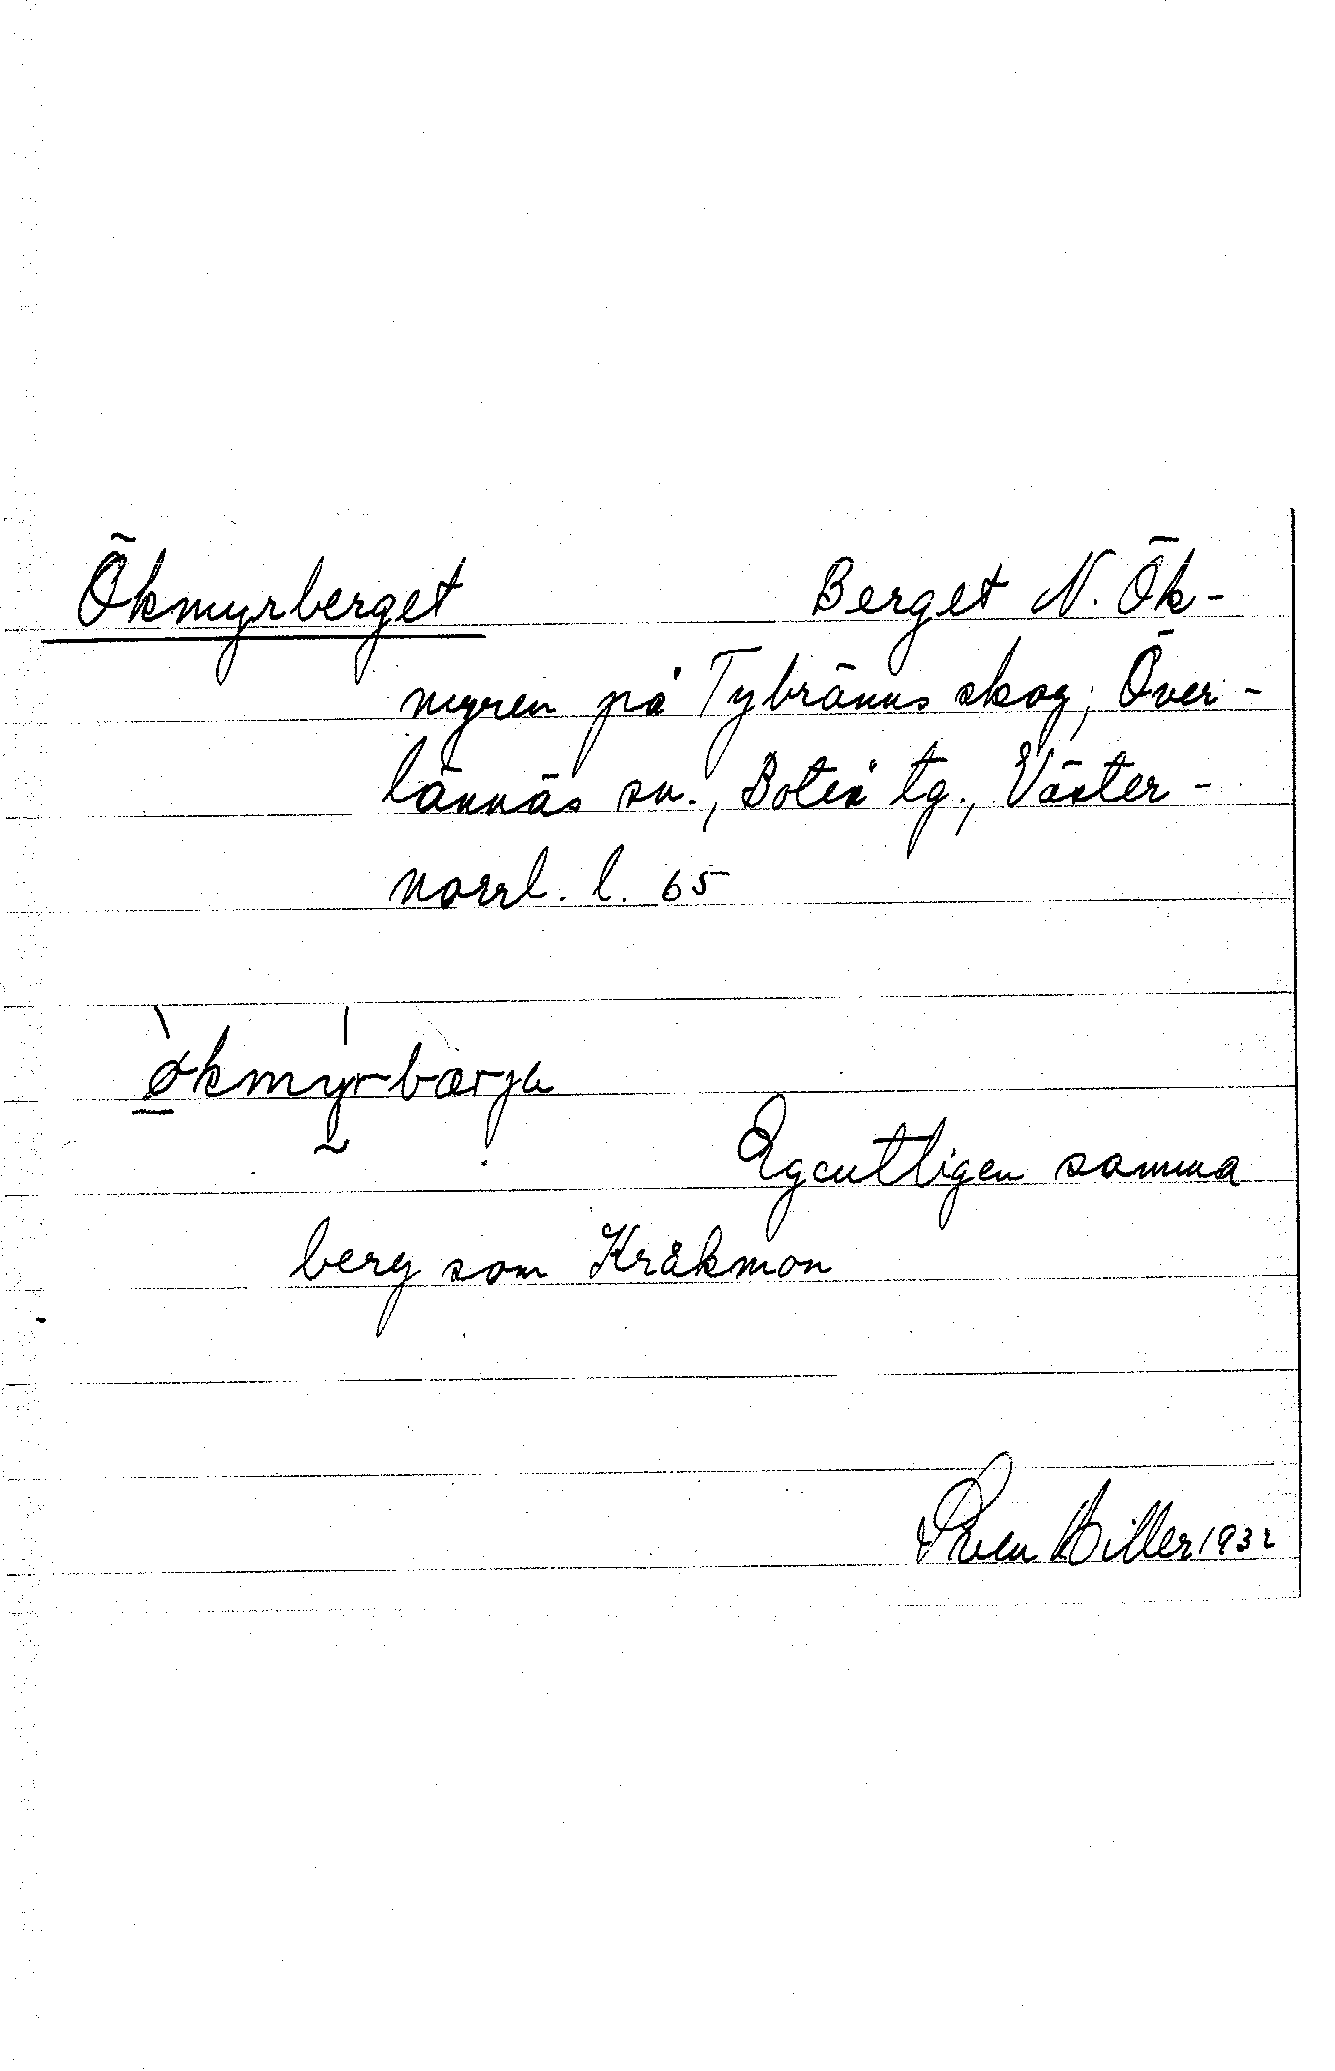 Ökmyrberget Berget N. Ök-
myren på Tybränns skog, Över-
lännäs sn., Boteå tg., Väster-
norrl. l. 65
økmyrbærja
Egentligen samma
berg som Kråkmon
Sven Hiller 1932